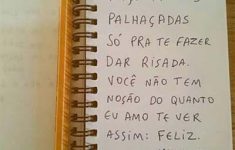 PALHAÇADAS
SÓ PRA TE FAZER
DAR RISADA.
VOCÊ NÃO TEM
NOÇÃO DO QUANTO
EU AMO TE VER
ASSIM: FELIZ.